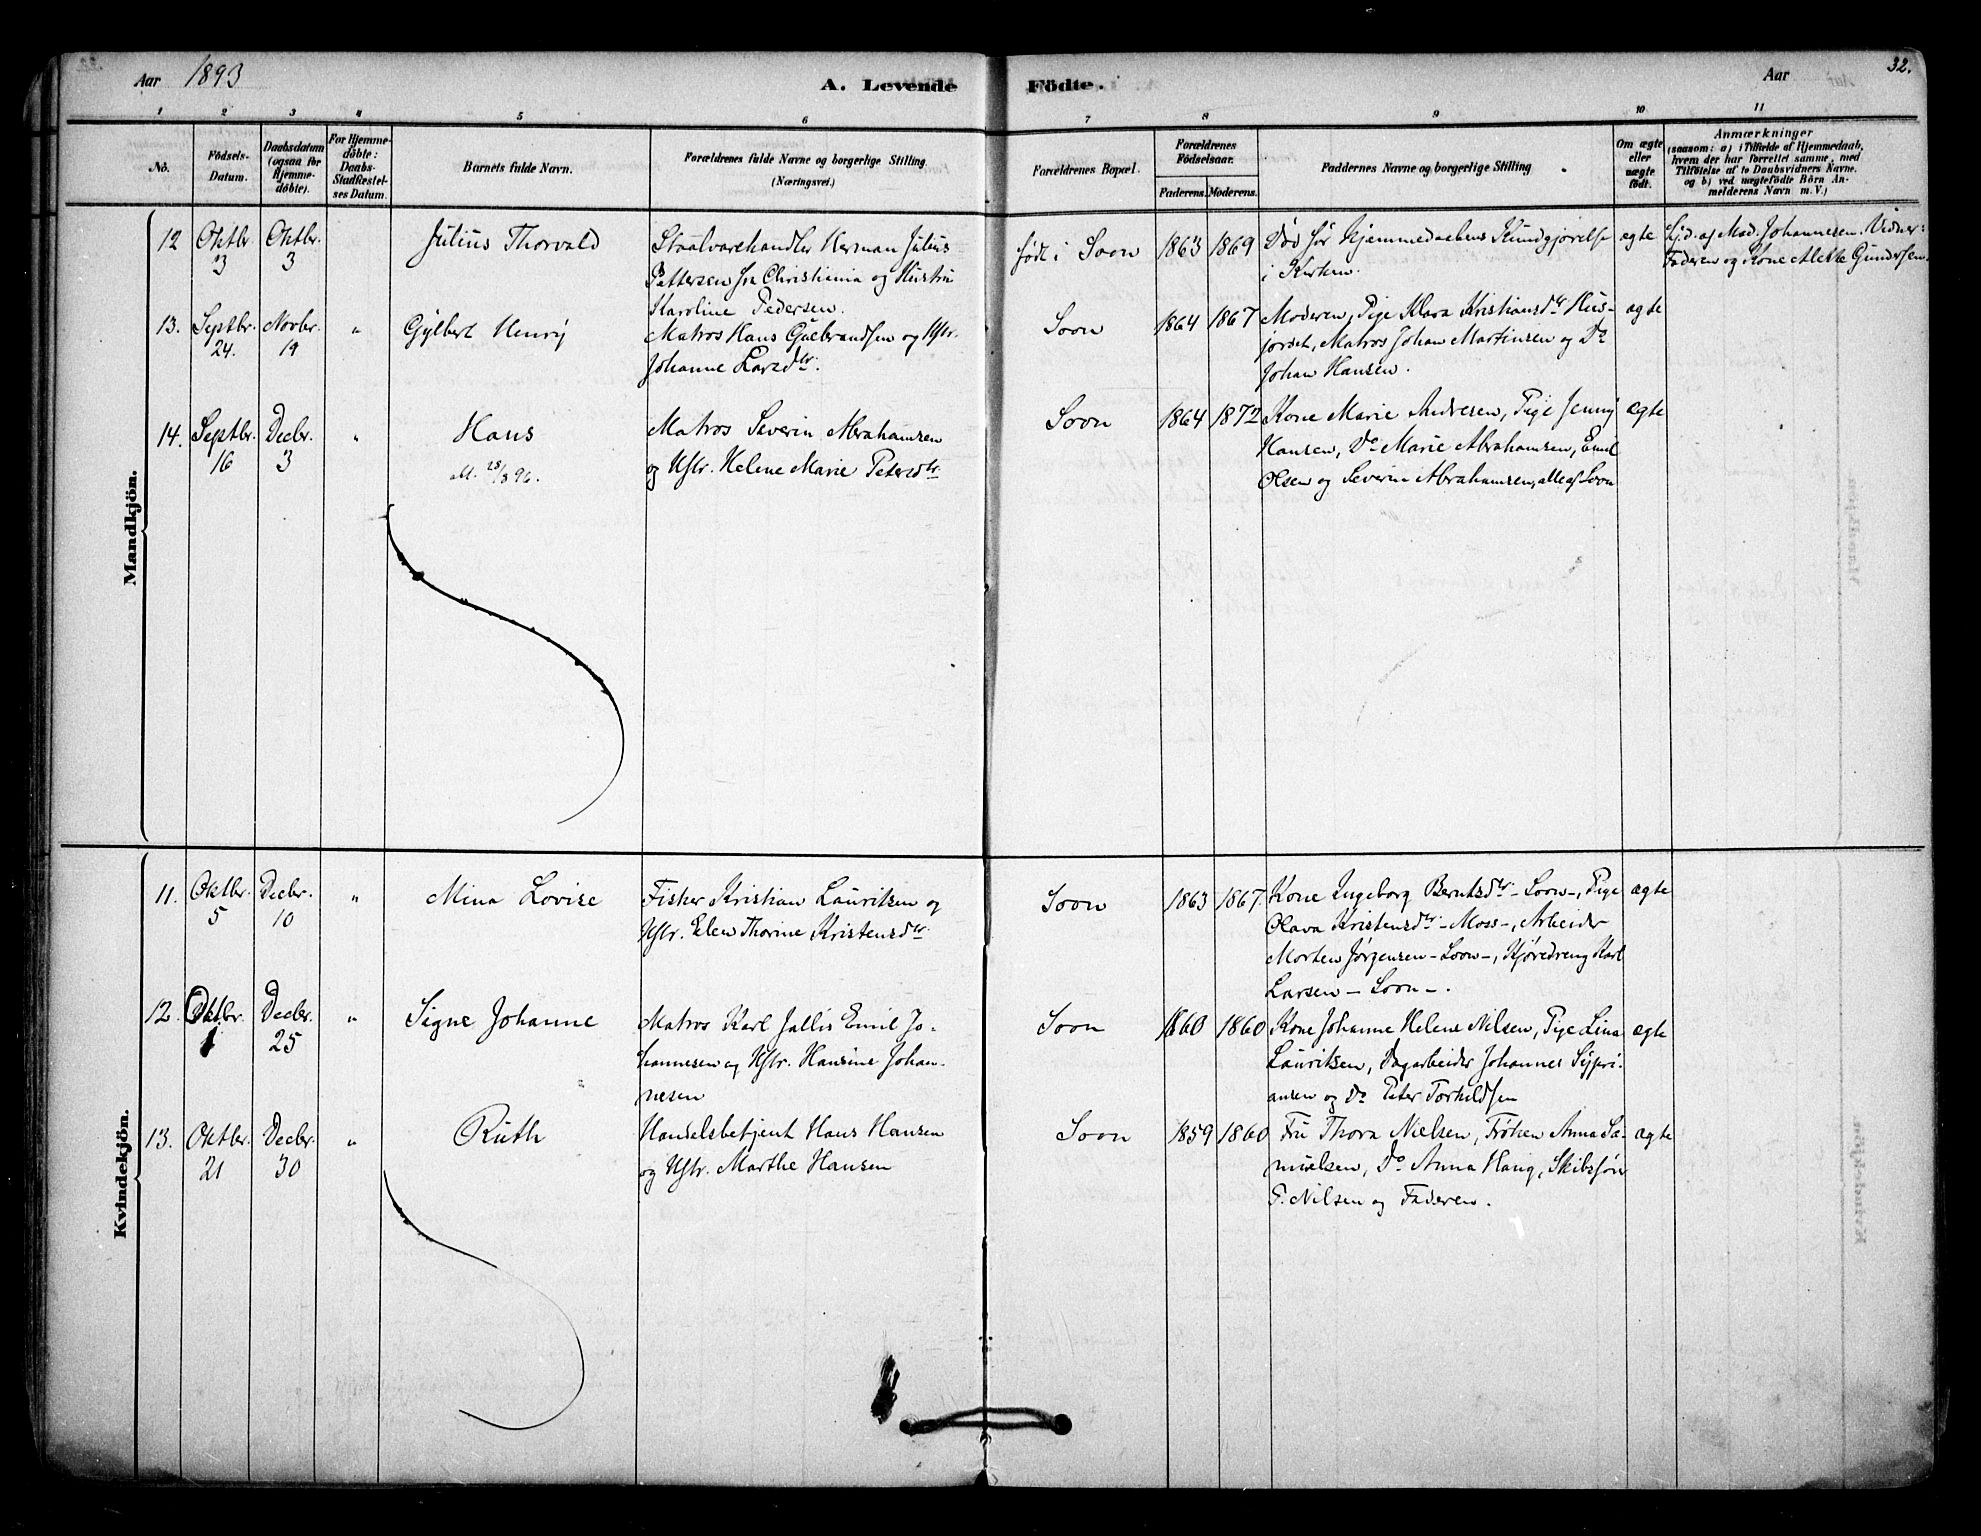 Aar 1893
A. Levende Födte.
Aar
32.
1 2 3 4 5 6 7 8 9 10 11
No.
Födsels-
Datum.
Daabsdatum
(ogsaa for
Hjemme-
döbte).
For Hjemme-
döbte:
Daabs-
Stadfæstel-
ses Datum.
Barnets fulde Navn.
Forældrenes fulde Navne og borgerlige Stilling
(Næringsvei.)
Forældrenes Bopæl.
Forældrenes
Födselsaar.
Faderens. Moderens.
Faddernes Navne og borgerlige Stilling
Om ægte
eller
uægte
födt.
Anmærkninger
(saasom: a) i Tilfælde af Hjemmedaab,
hvem der har forrettet samme, med
Tilföielse af to Daabsvidners Navne.
og b) ved uægtefödte Börn An-
melderens Navn m. V.)
Mandkjön.
12
Oktbr.
3
Oktbr.
3
Julius Thorvald
Staalvarehandler Herman Julius
Pettersen fra Christiania og Hustru
Karoline Pedersen.
født i Soon
1863
1869
Død før Hjemmedaabens Kundgjørelse
i Kirken.
ægte
Hjd. af Mad. Johannesen. Vidner:
Faderen og Kone Alette Gundersen.
13.
Septbr.
24.
Novbr.
19
"
Gylbert Henry
Matros Hans Gulbrandsen og Hstr.
Johanne Larsdtr.
Soon
1864
1867
Moderen, Pige Klara Kristiansdtr Hus-
jordet, Matros Johan Martinsen og Do
Johan Hansen.
ægte
14.
Septbr.
16
Decbr.
3
"
Hans
Matros Severin Abrahamsen
og Hstr. Helene Marie Petersdtr
Soon
1864
1872
Kone Marie Andresen, Pige Jenny
Hansen, Do Marie Abrahamsen, Emil
Olsen og Severin Abrahamsen, alle af Soon
ægte
Kvindekjön.
11.
Oktbr.
5
Decbr.
10
"
Mina Lovise
Fisker Kristian Lauritsen og
Hstr. Elen Thorine Kristensdtr.
Soon
1863
1867.
Kone Ingeborg Berntsdtr. - Soon -, Pige
Olava Kristensdtr. - Moss -, Arbeider
Morten Jørgensen - Soon -, Kjøredreng Karl
Larsen - Soon -.
ægte
12.
Oktbr.
1
Decbr.
25
"
Signe Johanne
Matros Karl Jallis Emil Jo-
hannesen og Hstr. Hansine Johan-
nesen
Soon
1860
1860
Kone Johanne Helene Nilsen, Pige Lina
Lauritsen, Dagarbeider Johannes Sypri-
ansen og Do Peter Torkildsen
ægte
13.
Oktbr.
21
Decbr.
30
"
Ruth
Handelsbetjent Hans Hansen
og Hstr. Marthe Hansen
Soon
1859
1860
Fru Thora Nielsen, Frøken Anna Sa-
muelsen, Do Anna Haug, Skibsfører
P. Nilsen og Faderen.
ægte